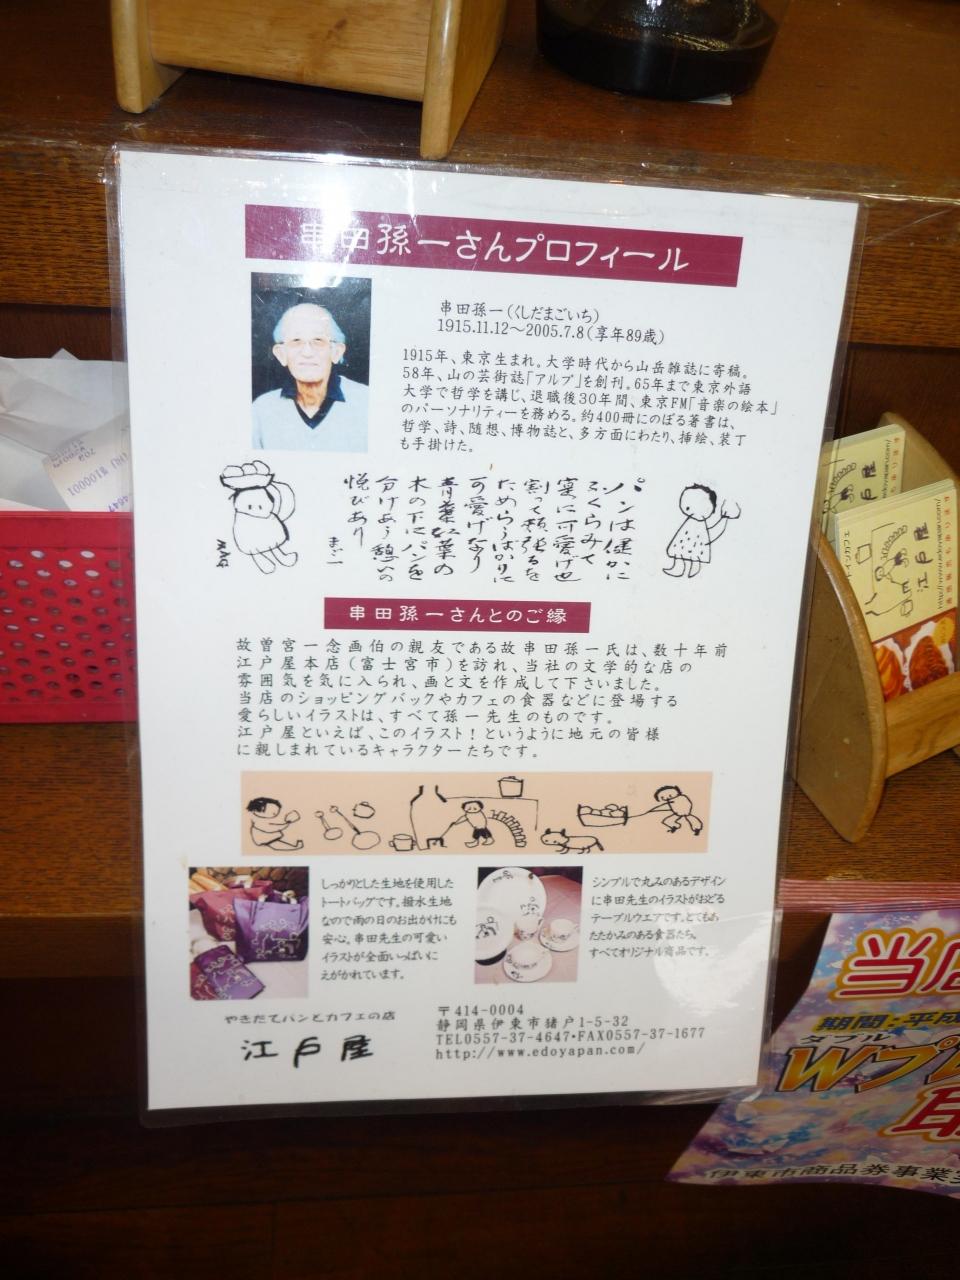 串田孫一さんプロフィール
串田孫一(くしだまごいち)
1915.11.12～2005.7.8(享年89歳)
1915年、東京生まれ。大学時代から山岳雑誌に寄稿。
58年、山の芸術誌「アルプ」を創刊。65年まで東京外語
大学で哲学を講じ、退職後30年間、東京FM「音楽の絵本」
のパーソナリティーを務める。約400冊にのぼる著書は、
哲学、詩、随想、博物誌と、多方面にわたり、挿絵、装丁
も手掛けた。
パンは健かに
ふくらみて
寔に可愛げ也
割って頬張るを
ためらうばかりに
可愛げなり
青葉紅葉の
木の下にパンを
分けあう憩への
悦びあり
まご一
MAG
串田孫一さんとのご縁
故曽宮一念画伯の親友である故串田孫一氏は、数十年前
江戸屋本店(富士宮市)を訪れ、当社の文学的な店の
雰囲気を気に入られ、画と文を作成して下さいました。
当店のショッピングバックやカフェの食器などに登場する
愛らしいイラストは、すべて孫一先生のものです。
江戸屋といえば、このイラスト!というように地元の皆様
に親しまれているキャラクターたちです。
しっかりとした生地を使用した
トートバッグです。撥水生地
なので雨の日のお出かけにも
安心。串田先生の可愛い
イラストが全面いっぱいに
えがかれています。
シンプルで丸みのあるデザイン
に串田先生のイラストがおどる
テーブルウエアです。とてもあ
たたかみのある食器たち。
すべてオリジナル商品です。
やきたてパンとカフェの店
江戸屋
〒414-0004
静岡県伊東市猪戸1-5-32
TEL0557-37-4647・FAX0557-37-1677
http://www.edoyapan.com/
江戸屋
江戸屋
当店
期間:平成
ダブル
Wプレ
伊東市商品券事業実